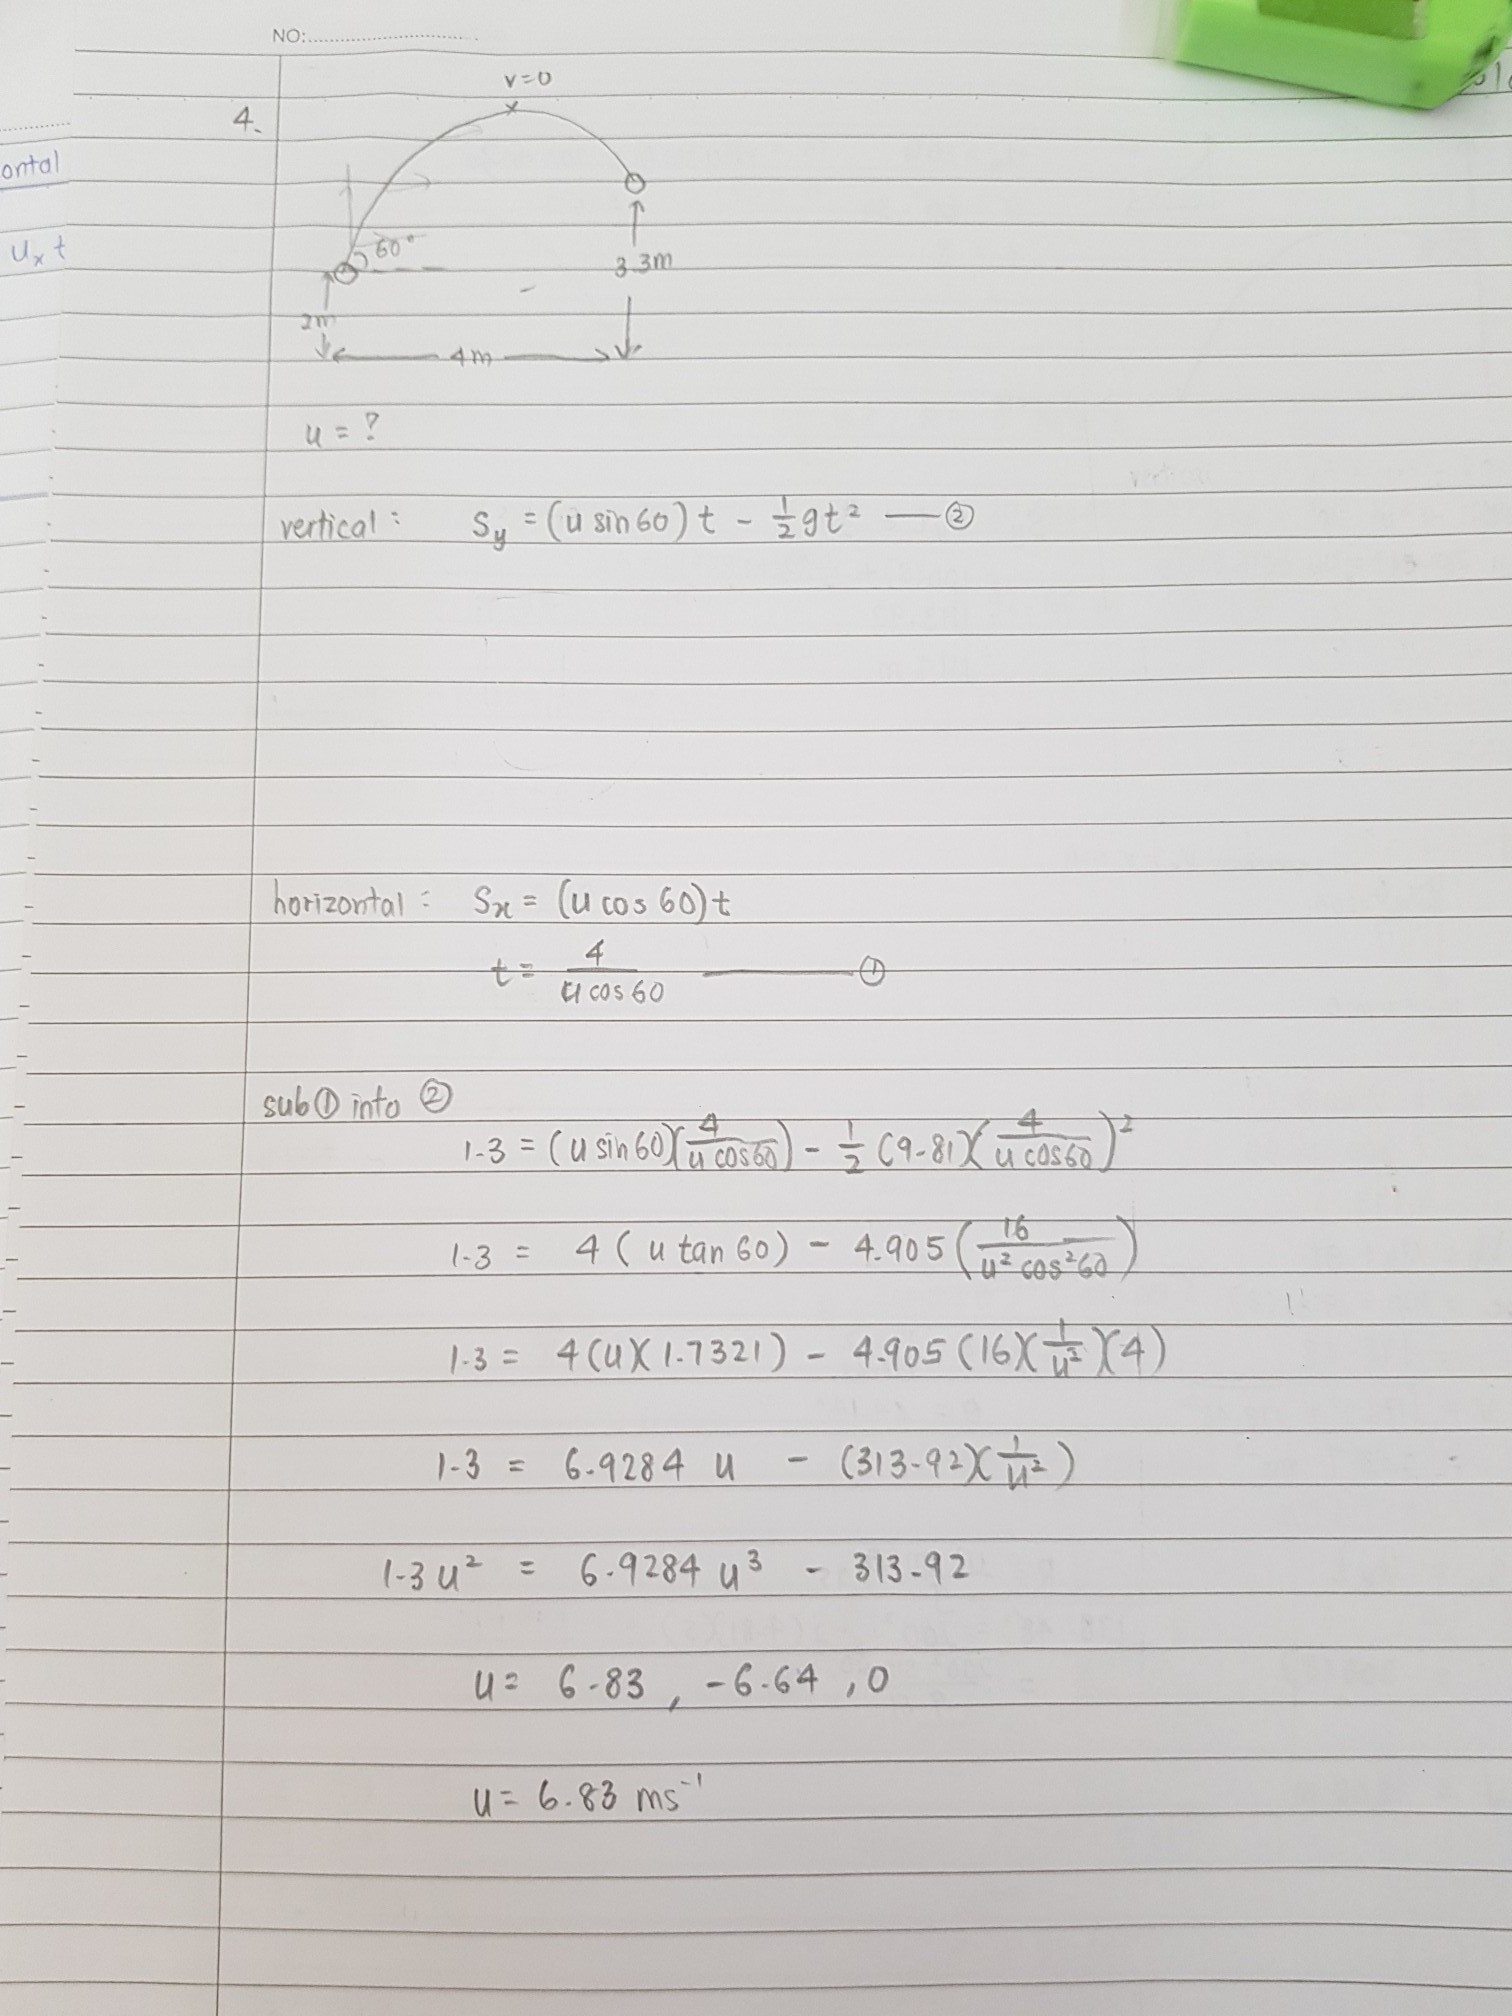 NO:
v=0
4.
ontal
60°
Ux t
3.3m
2m
4m
u = ?
vertical : Sy = (u sin 60) t - 1/2 gt² — ②
horizontal : Sx = (u cos 60) t
t = 4/(u cos 60) — ①
sub ① into ②
1.3 = (u sin 60)(4/(u cos 60)) - 1/2 (9.81)(4/(u cos 60))²
1.3 = 4 ( u tan 60) - 4.905 (16/(u² cos² 60))
1.3 = 4(u)(1.7321) - 4.905 (16)(1/u²)(4)
1.3 = 6.9284 u - (313.92)(1/u²)
1.3 u² = 6.9284 u³ - 313.92
u = 6.83 , -6.64 , 0
u = 6.83 ms⁻¹